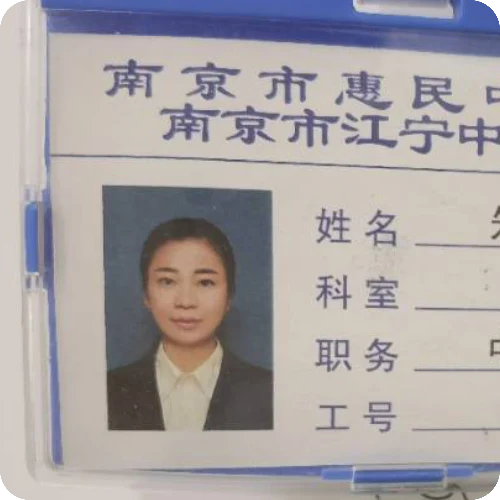 南京市惠民中
南京市江宁中
姓名
科室
职务 中
工号